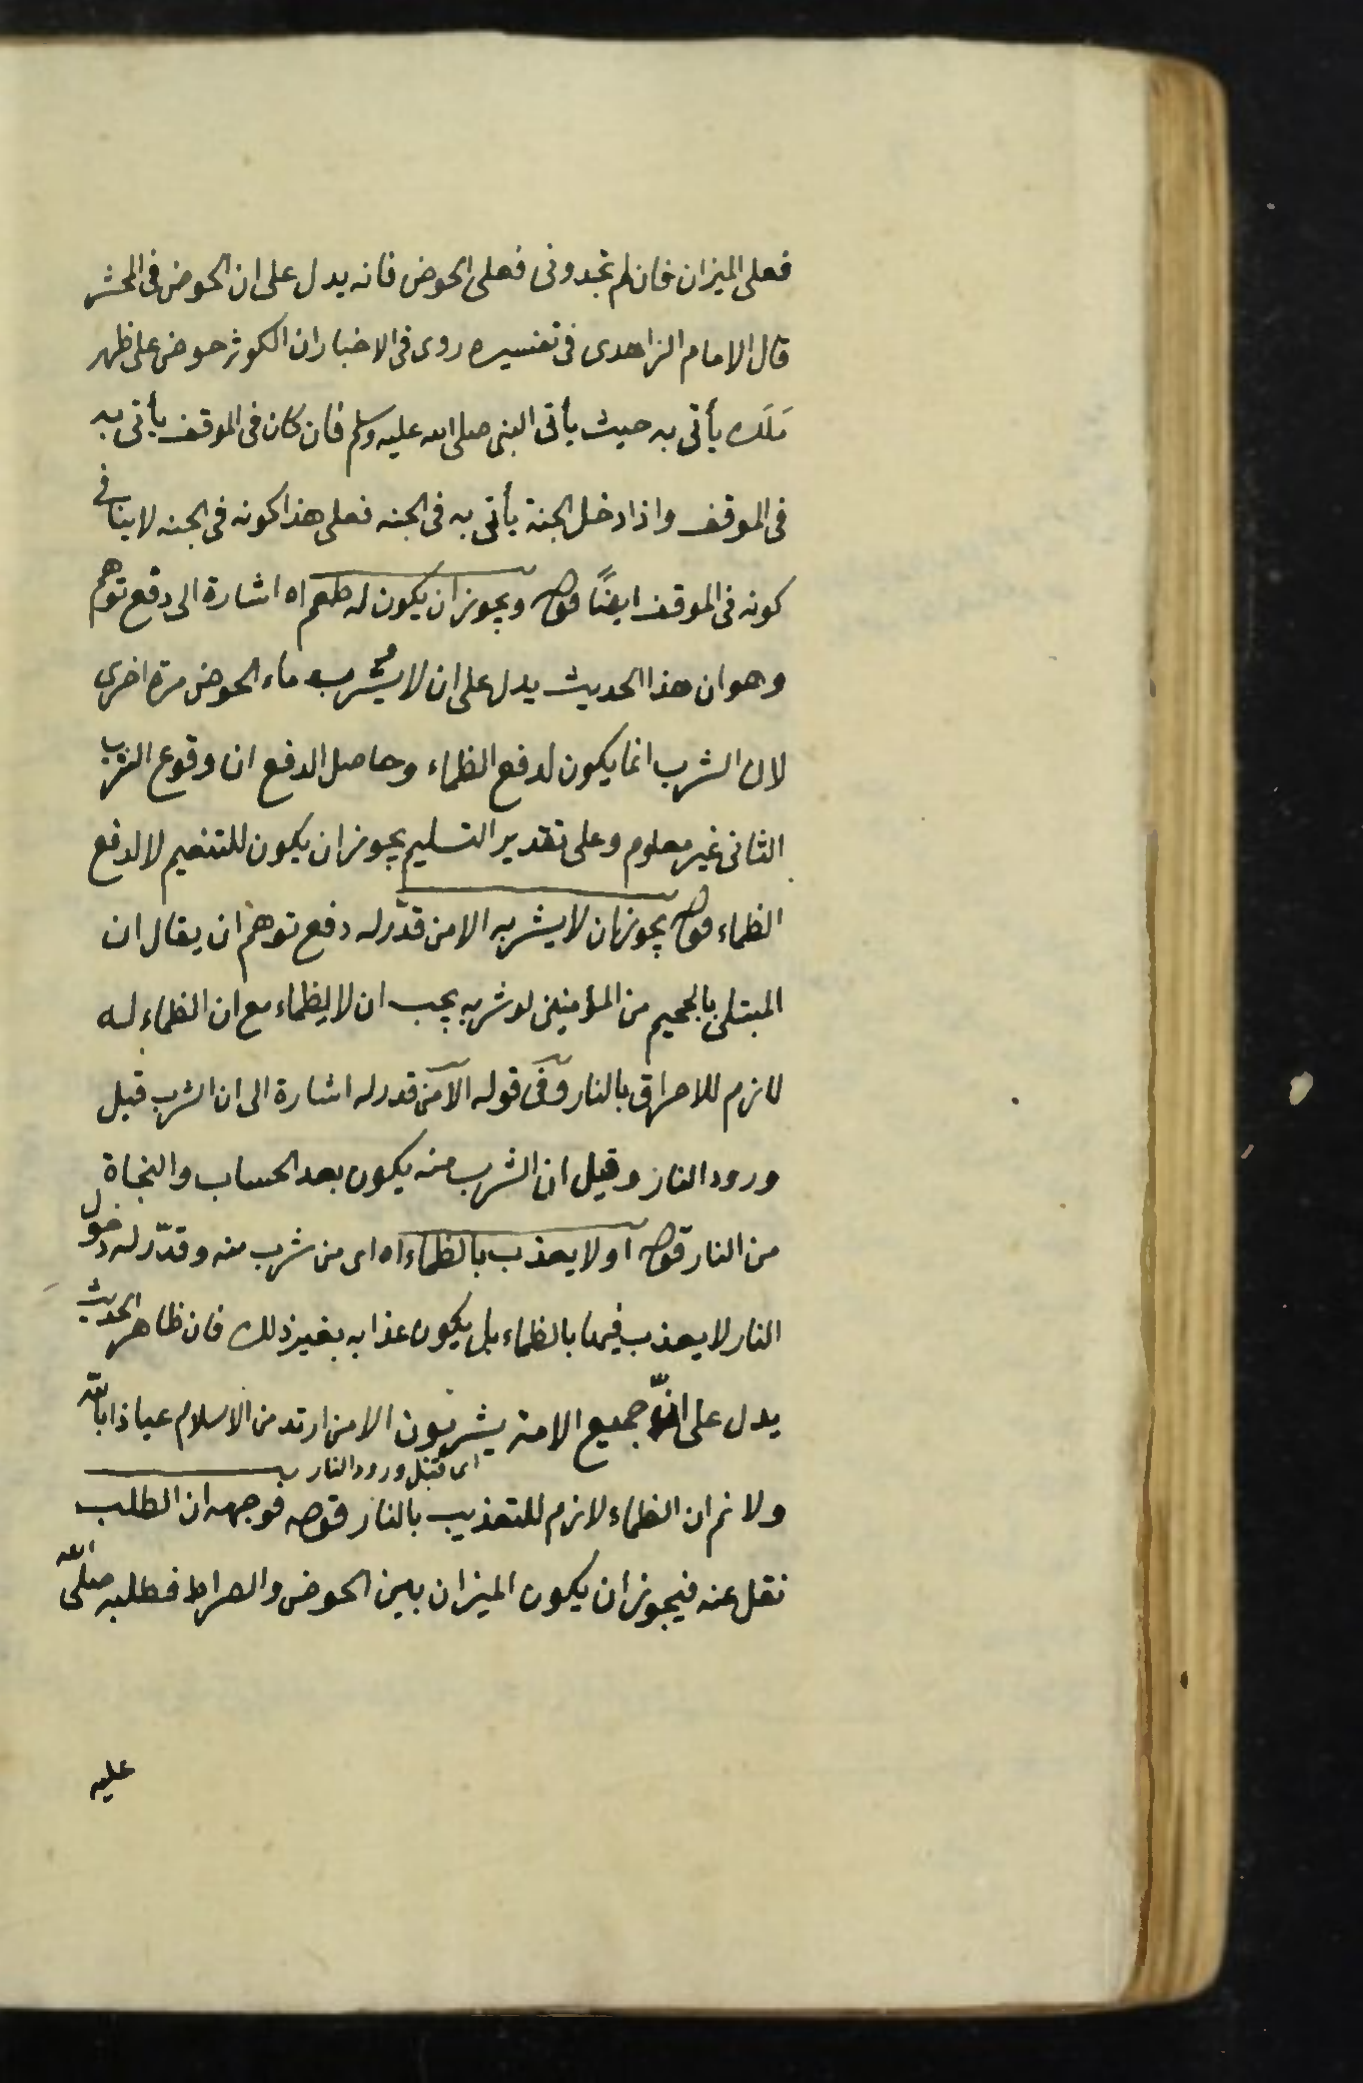 فعلى الميزان فان لم تجدونى فعلى الحوض فانه يدل على ان الحوض فى المحشر
قال الامام الزاهدى فى تفسيره روى فى الاخبار ان الكوثر حوض على ظهر
مَلَك يأتى به حيث يأتى النبى صلى الله عليه وسلم فان كان فى الموقف يأتى به
فى الموقف واذا دخل الجنة يأتى به فى الجنه فعلى هذا كونه فى الجنه لا ينافى
كونه فى الموقف ايضًا قوله ويجوز ان يكون له طعم اه اشارة الى دفع توهم
وهو ان هذا الحديث يدل على ان لا يشرب ماء الحوض مرة اخرى
لان الشرب انما يكون لدفع الظماء وحاصل الدفع ان وقوع الشرب
الثانى غير معلوم وعلى تقدير التسليم يجوز ان يكون للتنعيم لا لدفع
الظماء قوله يجوز ان لا يشربه الا من قدّر له دفع توهم ان يقال ان
المبتلى بالجحيم من المؤمنين لو شربه يجب ان لا يظماء مع ان الظماء له
لازم للاحراق بالنار وفى قوله الا من قدر له اشارة الى ان الشرب قبل
ورود النار وقيل ان الشرب منه يكون بعد الحساب والنجاة
من النار قوله او لا يعذب بالظماء اه اى من شرب منه وقدّر له دخول
النار لا يعذب فيها بالظماء بل يكون عذابه بغير ذلك فان ظاهر الحديث
يدل على انّ جميع الامة يشربون الا من ارتد من الاسلام عياذا بالله
اى قبل ورود النار
ولا نم ان الظماء لازم للتعذيب بالنار قوله فوجهه ان الطلب
نقل عنه فيجوز ان يكون الميزان بين الحوض والصراط فطلبه صلى الله
عليه